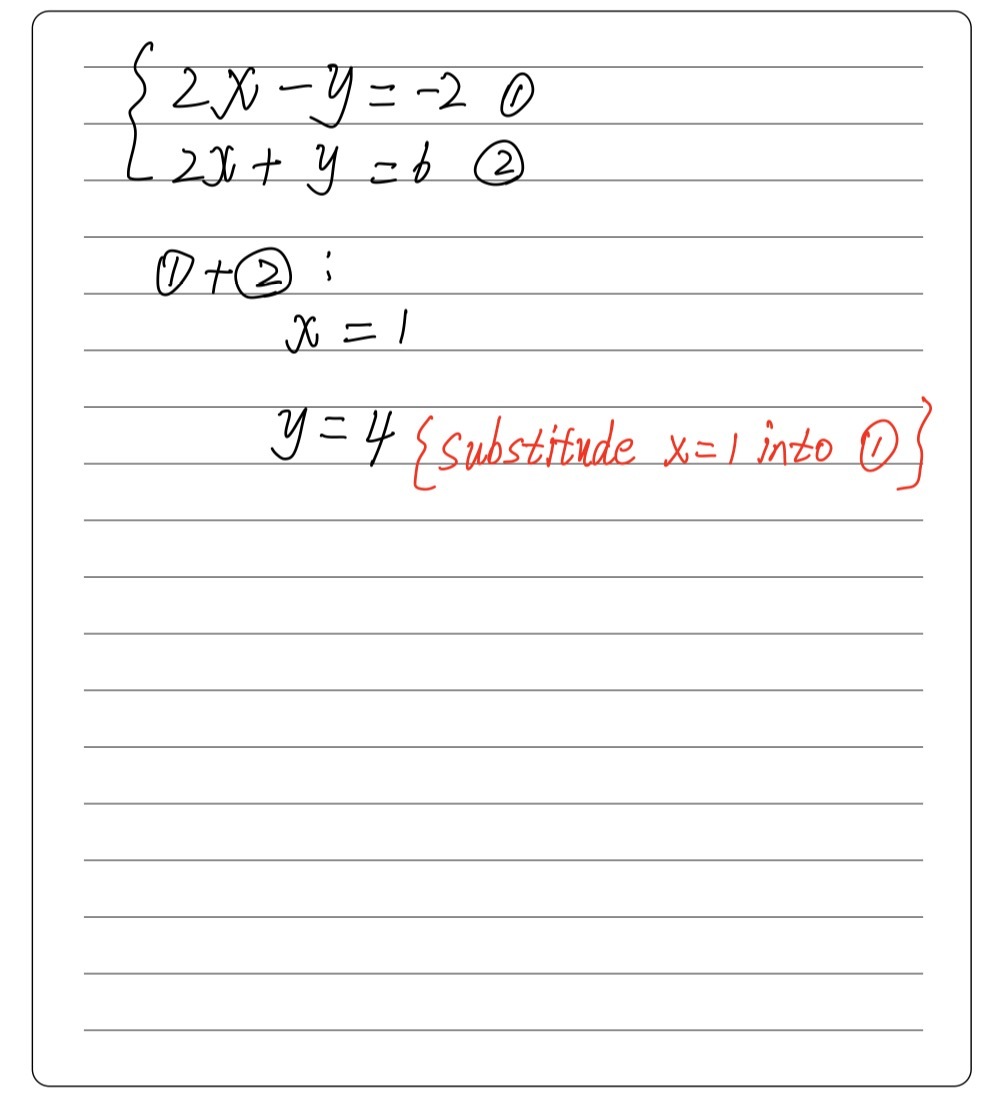 { 2x - y = -2 ①
2x + y = 6 ②
① + ② :
x = 1
y = 4 {substitude x=1 into ①}